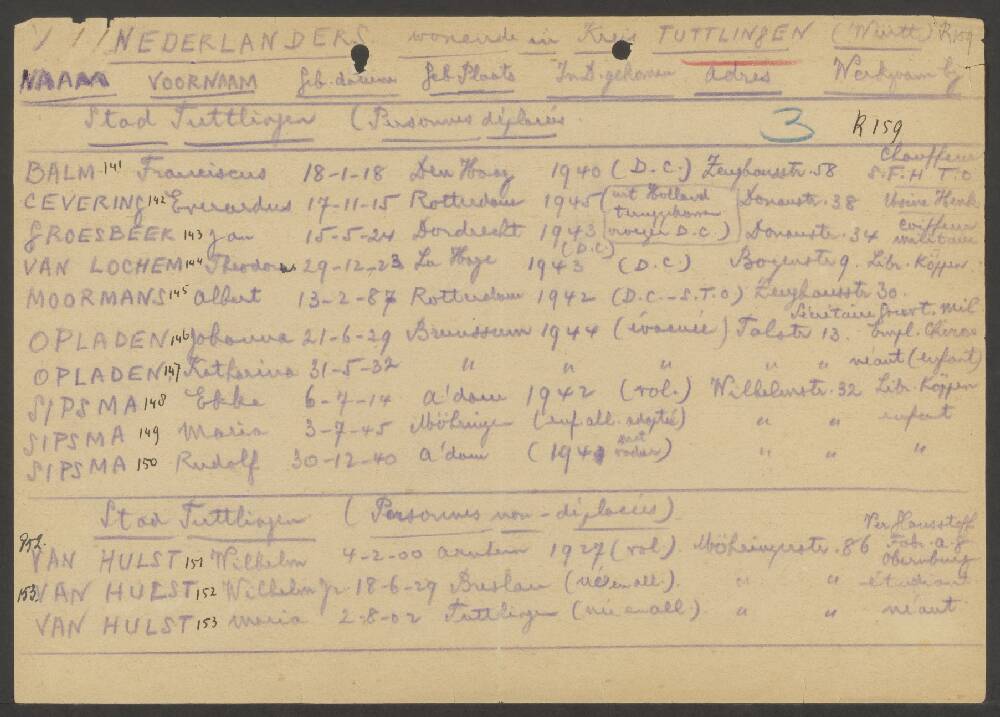 NEDERLANDERS wonende in Kreis TUTTLINGEN (Württ) R159
NAAM VOORNAAM Geb. datum Geb. Plaats In D. gekomen adres Werkzaam bij
Stad Tuttlingen (Personnes déplacées 3 R159
BALM 141 Franciscus 18-1-18 Den Haag 1940 (D.C.) Zeughausstr. 58 Chauffeur S.F.H T.O
CEVERING 142 Everardus 17-11-15 Rotterdam 1945 (uit Holland teruggekomen vroeger D.C.) Donaustr. 38 Usine Henke
GROESBEEK 143 Jan 15-5-24 Dordrecht 1943 (D.C.) Donaustr. 34 coiffeur militaire
VAN LOCHEM 144 Theodorus 29-12-23 La Haye 1943 (D.C.) Bogenstr 9. Libr. Köppen
MOORMANS 145 Albert 13-2-87 Rotterdam 1942 (D.C.-S.T.O) Zeughausstr 30.
OPLADEN 146 Johanna 21-6-29 Brunssum 1944 (évacuée) Talstr 13. Gouv. Mil.
OPLADEN 147 Katharina 31-5-32 " " " " " néant (enfant)
SIPSMA 148 Ebke 6-7-14 A'dam 1942 (vol.) Wilhelmstr. 32 Libr. Köppen
SIPSMA 149 Maria 3-7-45 Möhringen (enf. all. adoptée) " " enfant
SIPSMA 150 Rudolf 30-12-40 A'dam (194 met vader) " " "
Stad Tuttlingen (Personnes non-déplacées)
152. VAN HULST 151 Wilhelm 4-2-00 Arnhem 1927 (vol). Möhringerstr. 86 Ver. Glausstoff Fabr. A.G Obernburg
153. VAN HULST 152 Wilhelm Jr. 18-6-29 Breslau (né en all.) " " étudiant
VAN HULST 153 Maria 2-8-02 Tuttlingen (née en all.) " " néant